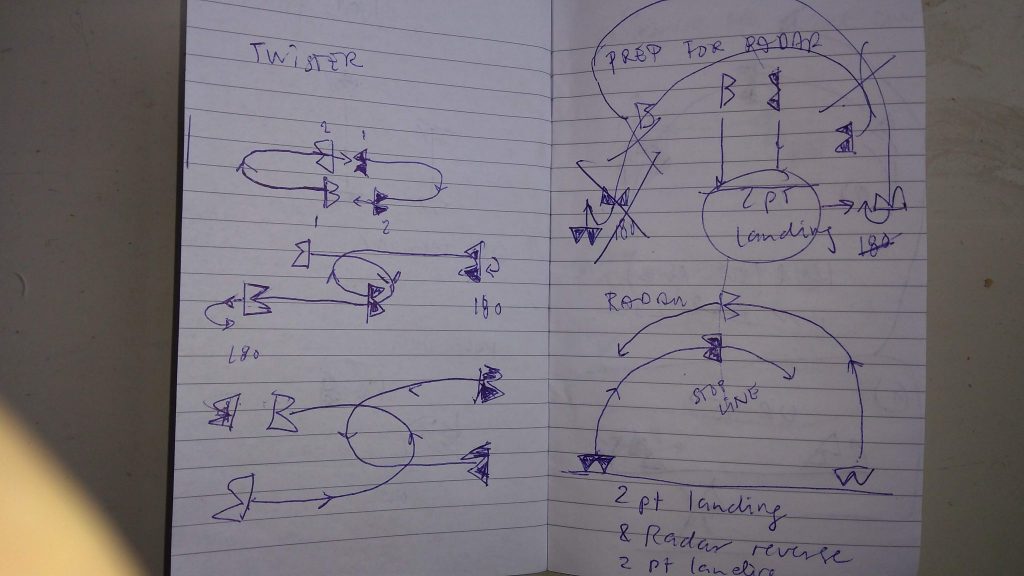 TWISTER
2 1
1 2
180
180
PREP FOR RADAR
2 PT
landing
180
180
RADAR
STOP
LINE
2 pt landing
& Radar reverse
2 pt landing